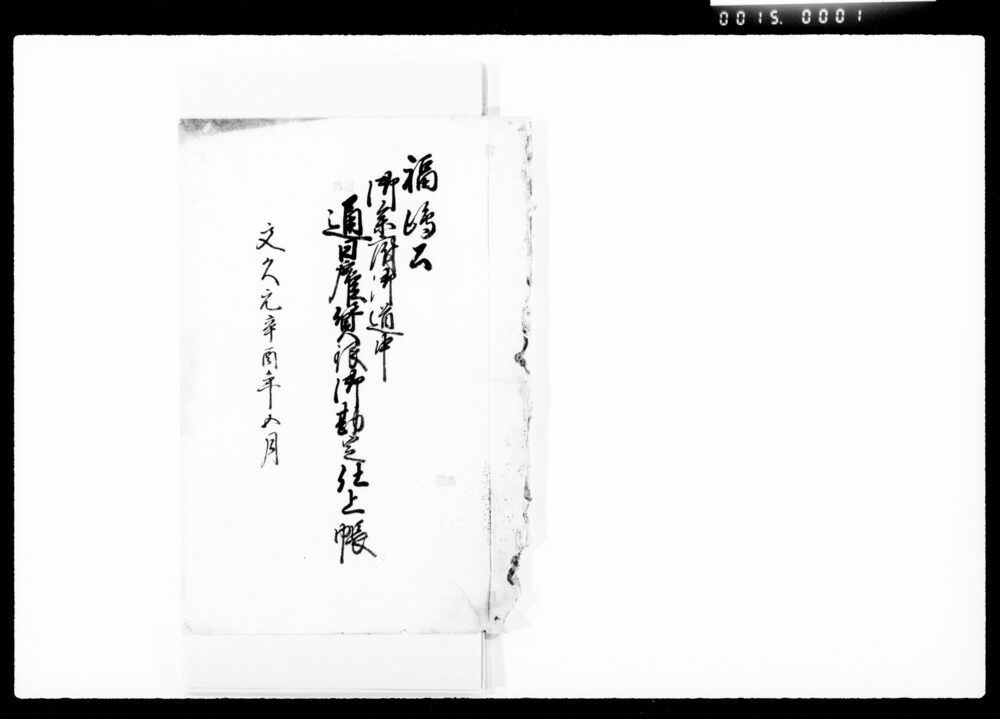 0015. 0001
福嶋ゟ
御参府御道中
通日雇賃銀御勘定仕上帳
文久元辛酉年五月